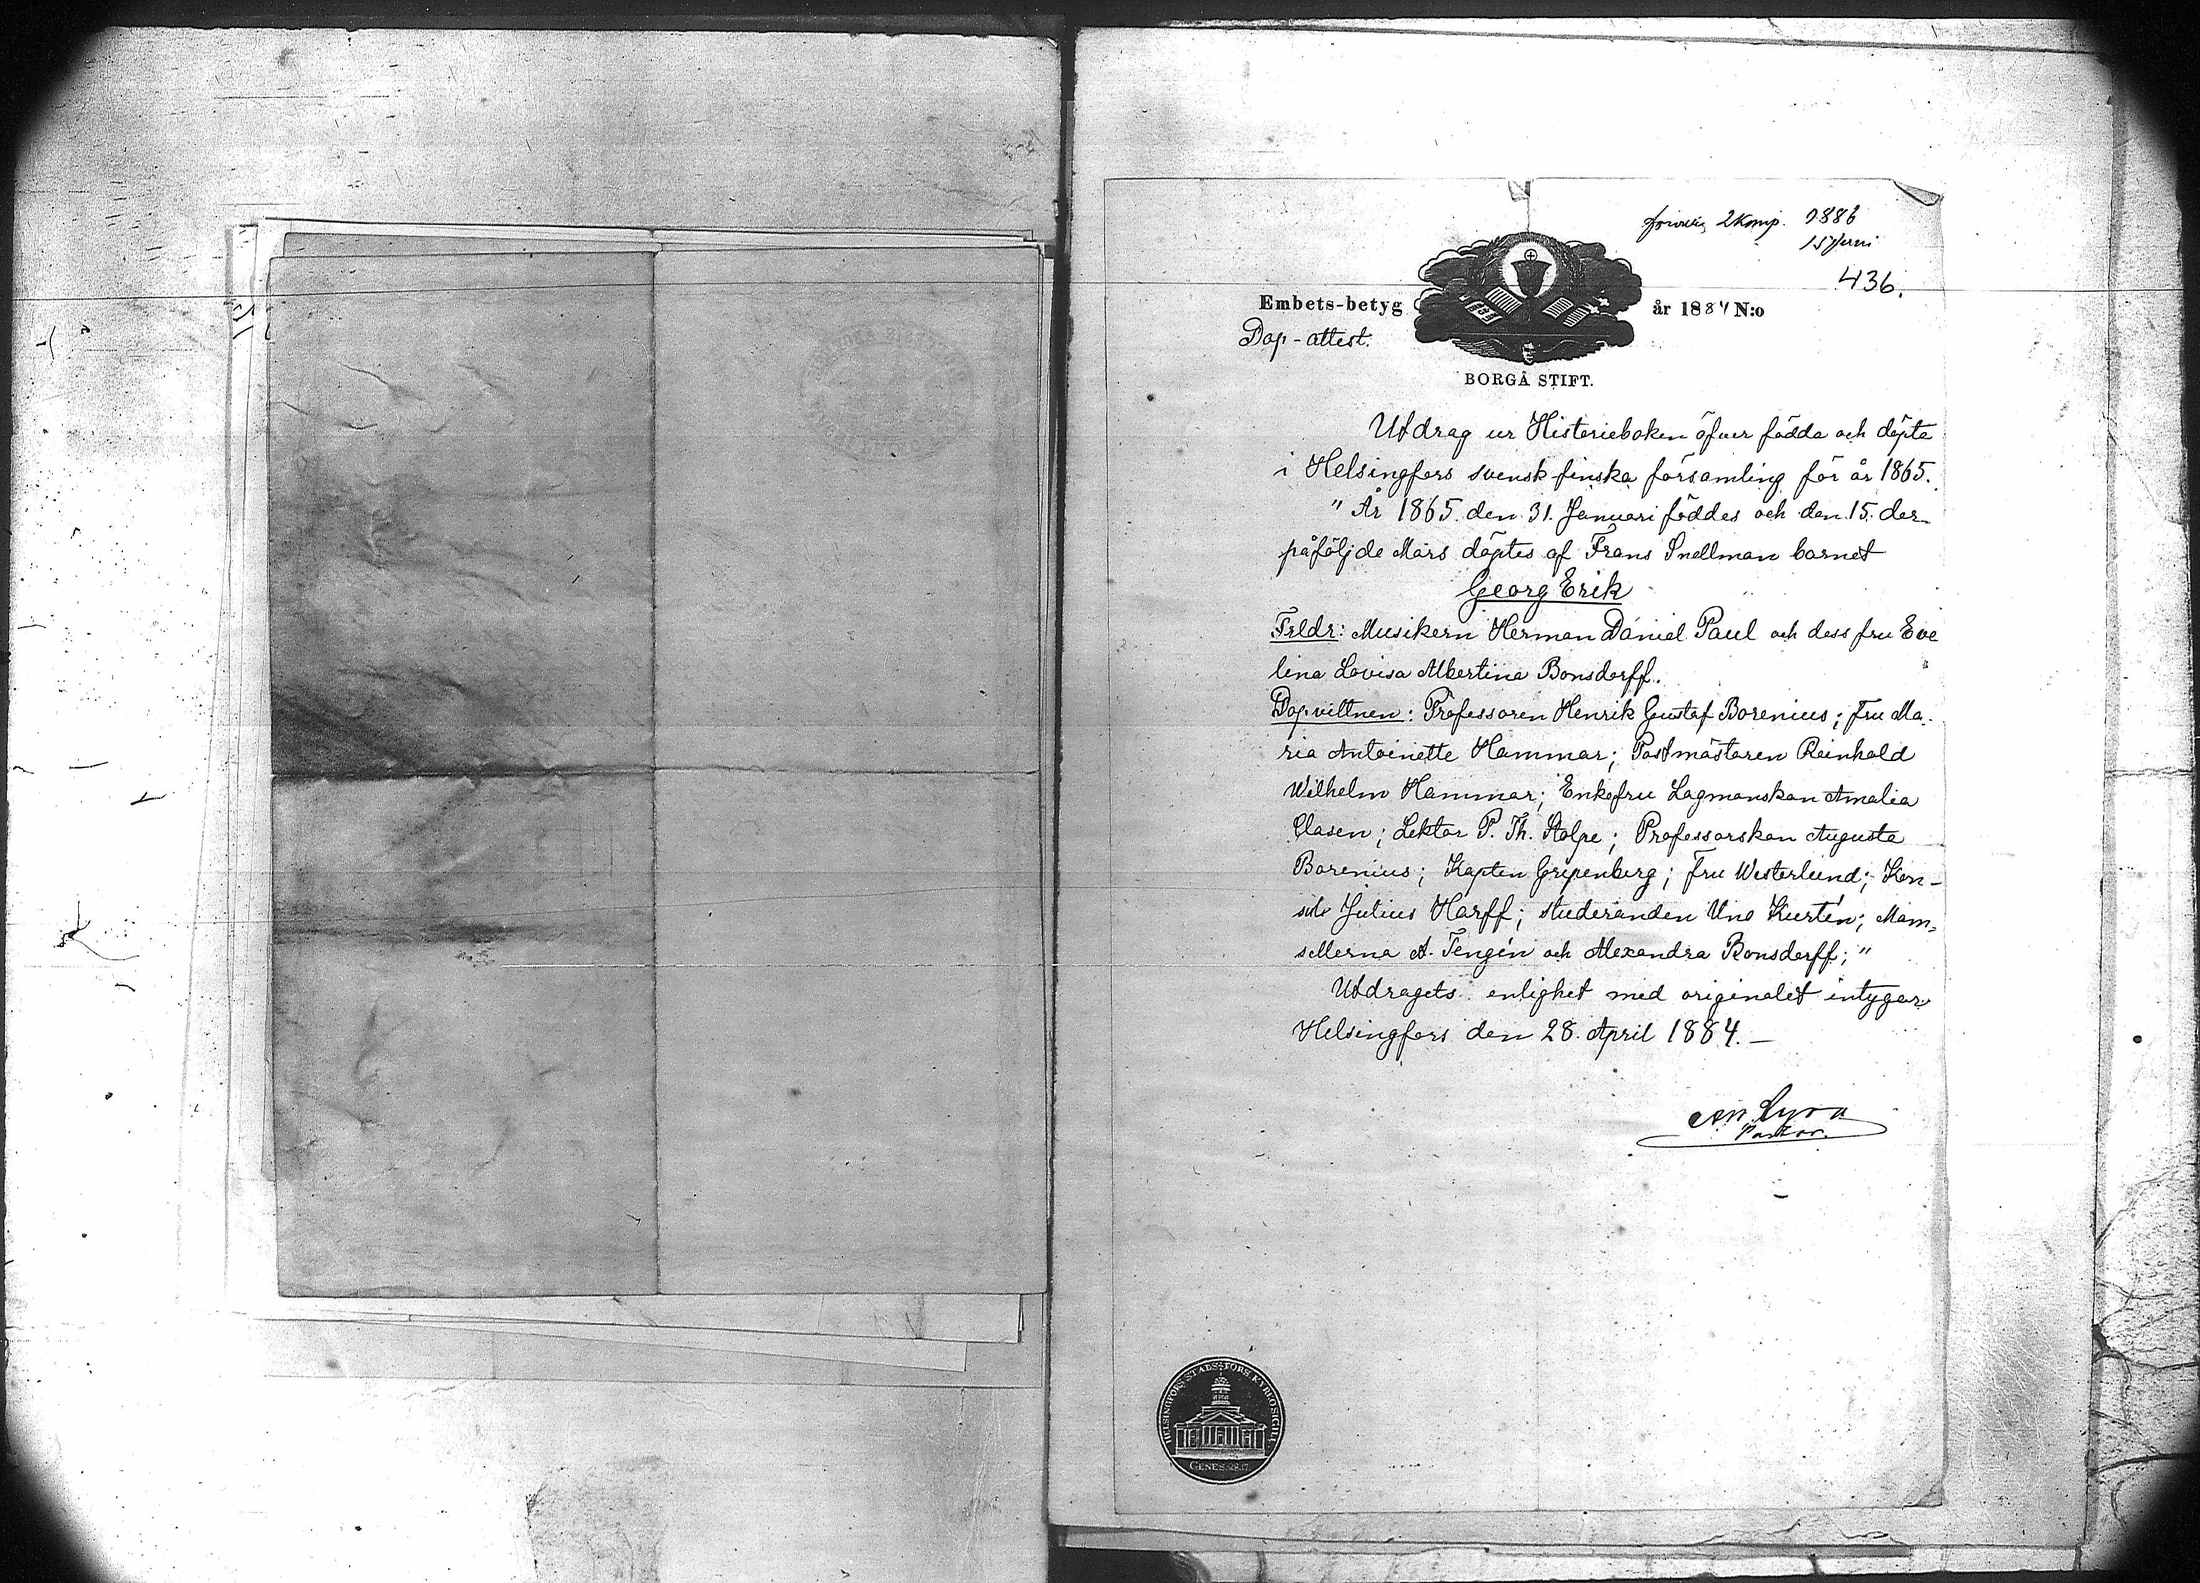 2 Komp. 1886
15 Juni
436.
Embets-betyg
år 1884 N:o
Dop-attest.
BORGÅ STIFT.
Utdrag ur Historieboken öfver födda och döpta
i Helsingfors svensk finska församling för år 1865.
" År 1865 den 31. Januari föddes och den 15. der-
påföljde Mars döptes af Frans Snellman barnet
Georg Erik
Frldr: Musikern Herman Daniel Paul och dess fru Eve
lina Lovisa Albertina Bonsdorff.
Dopvittnen: Professoren Henrik Gustaf Borenius; Fru Ma-
ria Antoinette Hammar; Postmästaren Reinhold
Wilhelm Hammar; Enkefru Lagmanskan Amalia
Clasen; Lektor P. Th. Stolpe; Professorskan Augusta
Borenius; Kapten Gripenberg; Fru Westerlund; Kon-
suln Julius Harff; studeranden Uno Kurtén; Mam-
sellerna A. Tengén och Alexandra Bonsdorff; "
Utdragets enlighet med originalet intygar
Helsingfors den 28. April 1884. —
Lyra
Pastor.
HELSINGFORS STADS FÖRS. KYRKOSIGILL
GENES. 28.17.